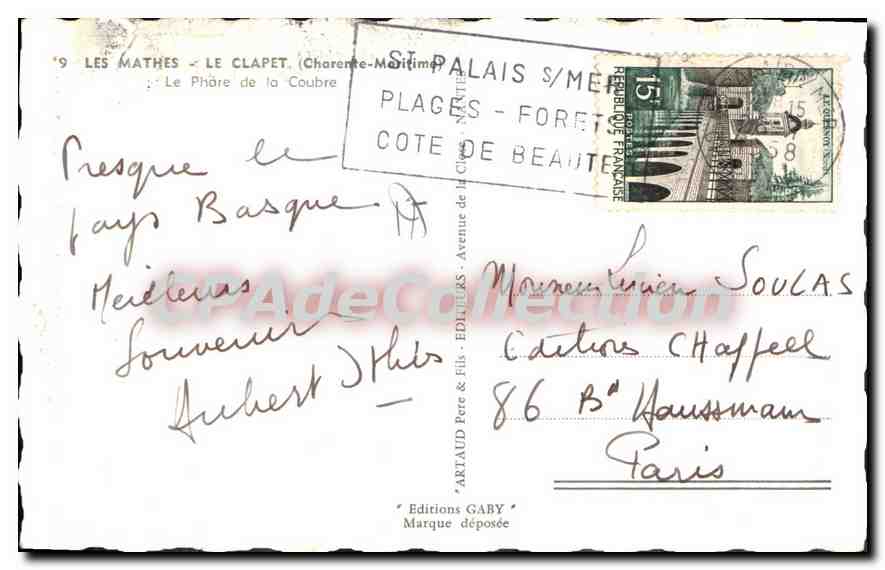 9 LES MATHES - LE CLAPET. (Charente-Maritime)
Le Phare de la Coubre
ST PALAIS S/MER
PLAGES - FORET
COTE DE BEAUTE
15F
POSTES
REPUBLIQUE FRANÇAISE
LE QUESNOY
15
58
Presque le
pays Basque
Meilleurs
Souvenirs
Hubert
"ARTAUD Pere & Fils - EDITEURS - Avenue de la Close - NANTES
Monsieur Lucien SOULAS
Editions CHappell
86 Bd Haussmann
Paris
" Editions GABY "
Marque déposée
CPAdeCollection.com